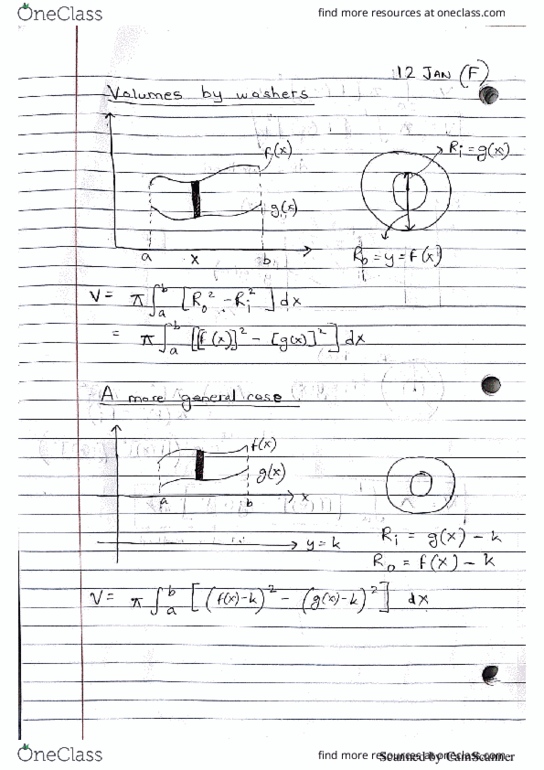 OneClass
find more resources at oneclass.com
12 JAN (F)
Volumes by washers
f(x)
g(x)
a x b
Ri = g(x)
Ro = y = f(x)
V = π ∫_a^b [Ro² - Ri²] dx
= π ∫_a^b [[f(x)]² - [g(x)]²] dx
A more general case
f(x)
g(x)
a b x
y = k
Ri = g(x) - k
Ro = f(x) - k
V = π ∫_a^b [(f(x)-k)² - (g(x)-k)²] dx
OneClass
find more resources at oneclass.com
Scanned by CamScanner